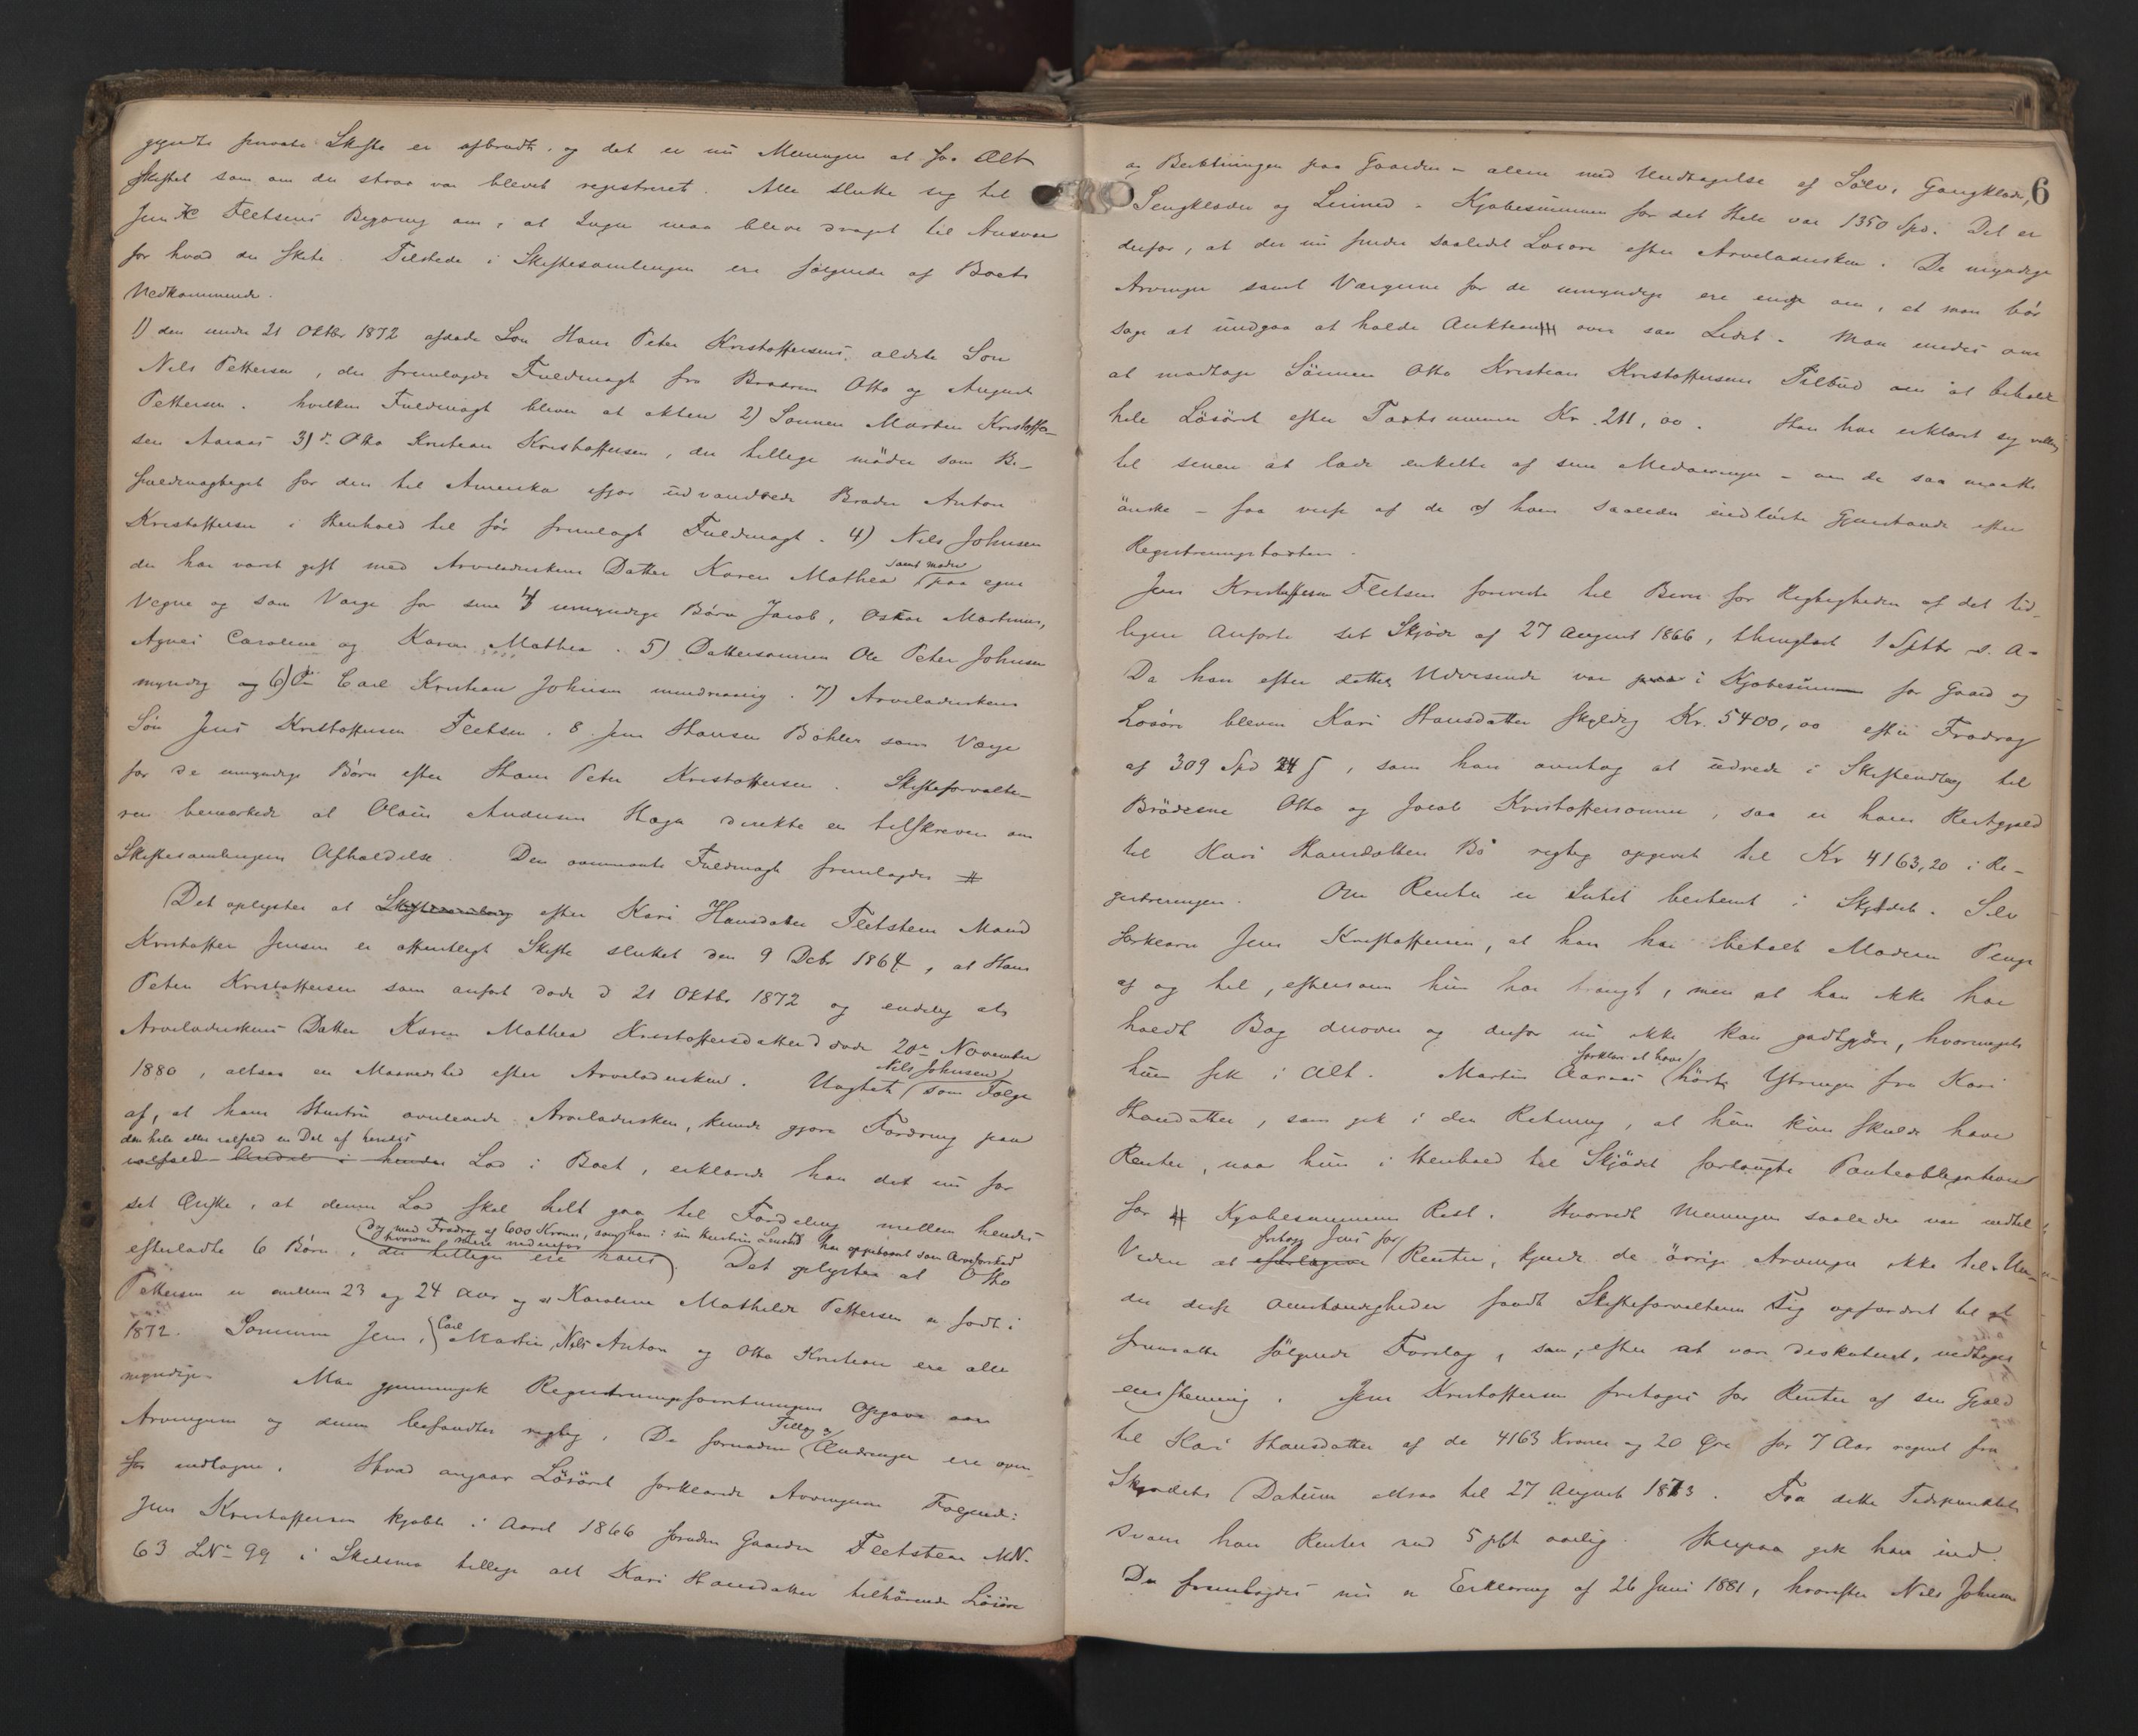 gyndte private Skifte er afbrudt og det er nu Meningen at faa Alt
skiftet som om der strax var blevet registreret. Alle slutte sig til
Jens K. Fletsens Begjæring om, at Ingen maa blive draget til Ansvar
for hvad der skete. Tilstede i Skiftesamlingen ere følgende af Boets
Vedkommende.
1) den under 21 Oktbr 1872 afdøde Søn Hans Peter Kristoffersens ældste Søn
Nils Pettersen, der fremlagde Fuldmagt fra Brødrene Otto og August
Pettersen. hvilken Fuldmagt bliver at aktere 2) Sønnen Morten Kristoffer-
sen Aaraas 3) do Otto Kristian Kristoffersen, der tillige møder som Be-
fuldmægtiget for den til Amerika ifjor udvandrede Broder Anton
Kristoffersen i Henhold til før fremlagt Fuldmagt. 4) Nils Johnsen
der har været gift med Arveladerskens Datter Karen Mathea
samt møder
paa egne
Vegne og som Værge for sine 4 umyndige Børn Jacob, Oskar Martinus,
Agnes Caroline og Karen Mathea. 5) Dattersønnen Ole Peter Johnsen
myndig og 6) Do Carl Kristian Johnsen mindreaarig. 7) Arveladerskens
Søn Jens Kristoffersen Fletsen. 8. Jens Hansen Bøhler som Værge
for de umyndige Børn efter Hans Peter Kristoffersen. Skifteforvalte-
ren bemærkede at Olaus Andersen Haga direkte er tilskreven om
Skiftesamlingens Afholdelse. Den ommeldte Fuldmagt fremlagdes #
Det oplystes at Skiftesamling efter Kari Hansdatter Fletstens Mand
Kristoffer Jensen er offentligt Skifte sluttet den 9 Decbr 1864, at Hans
Peter Kristoffersen som anført døde d 21 Oktbr 1872 og endelig at
Arveladerskens Datter Karen Mathea Kristoffersdatter døde 20de November
1880, altsaa en Maanedstid efter Arveladersken. Uagtet
Nils Johnsen
som Følge
af, at hans Hustru overlevede Arveladersken, kunde gjøre Fordring paa
den hele eller ialfald en Del af hendes
Lod i Boet, erklærede han det nu for
sit Ønske, at denne Lod skal helt gaa til Fordeling mellem hendes
Dog med Fradrag af 600 Kroner, som han i sin Hustrus Levetid har oppebaaret som Arveforskud
hvorom mere nedenfor
efterladte 6 Børn, der tillige ere hans. Det oplystes at Otto
Pettersen er mellem 23 og 24 Aar og at Karoline Mathilde Pettersen er født i
1872. Sønnerne Jens,
Carl
Martin, Nils Anton og Otto Kristian ere alle
myndige. Man gjennemgik Registreringsforretningens Opgave over
Arvingerne og denne befandtes rigtig. De fornødne
Tillæg og
Ændringer ere oven-
for indtagne. Hvad angaar Løsøret forklarede Arvingerne Følgende:
Jens Kristoffersen kjøbte i Aaret 1866 foruden Gaarden Fletsten MN.
63 LNr 99 i Skedsmo tillige alt Kari Hansdatter tilhørende Løsøre
6
og Besætningen paa Gaarden - alene med Undtagelse af Sølv, Gangklæder,
Sengklæder og Linned. Kjøbesummen for det Hele var 1350 Spd. Det er
derfor, at der nu findes saalidet Løsøre efter Arveladersken. De myndige
Arvinger samt Værgerne for de umyndige ere enige om, at man bør
søge at undgaa at holde Auktion over saa Lidet. Man enedes om
at modtage Sønnen Otto Kristian Kristoffersens Tilbud om at beholde
hele Løsøret efter Taxtsummen Kr. 211,00. Han har erklæret sig villig
til senere at lade enkelte af sine Medarvinger - om de saa maatte
ønske - faa visse af de af ham saaledes indløste Gjenstande efter
Registreringstaxten.
Jens Kristoffersen Fletsen foreviste til Bevis for Rigtigheden af det tid-
ligere Anførte sit Skjøde af 27 August 1866, thinglæst 1 Septbr s. A.
Da han efter dettes Udvisende var i Kjøbesummen for Gaard og
Løsøre bleven Kari Hansdatter skyldig Kr. 5400,00 efter Fradrag
af 309 Spd 24 ß, som han overtog at udrede i Skifteudlæg til
Brødrene Otto og Jacob Kristoffersønner, saa er hans Restgjæld
til Kari Hansdatters Bo rigtig opgivet til Kr 4163,20 i Re-
gistreringen. Om Renter er Intet bestemt i Skjødet. Selv
forklarer Jens Kristoffersen, at han har betalt Moderen Penge
af og til, eftersom hun har trængt, men at han ikke har
holdt Bog derover og derfor nu ikke kan godtgjøre, hvormeget
hun fik i Alt. Martin Aaraas
forklarer at have
hørt Ytringer fra Kari
Hansdatter, som gik i den Retning, at hun kun skulde have
Renter, naar hun i Henhold til Skjødet forlangte Panteobligation
for Kjøbesummens Rest. Hvorvidt Meningen saaledes var indtil
Videre at
fritage Jens for
Renter, kjende de øvrige Arvinger ikke til. Un-
der disse Omstændigheder fandt Skifteforvalteren sig opfordret til at
fremsætte følgende Forslag, som, efter at være diskuteret, vedtoges
enstemmig. Jens Kristoffersen fritages for Renter af sin Gjæld
til Kari Hansdatter af de 4163 Kroner og 20 Øre for 7 Aar regnet fra
Skjødets Datum altsaa til 27 August 1873. Fra dette Tidspunkt
svarer han Renter med 5 pCt aarlig. Herpaa gik han ind.
Der fremlagdes nu en Erklæring af 26 Juni 1881, hvorefter Nils Johnsen